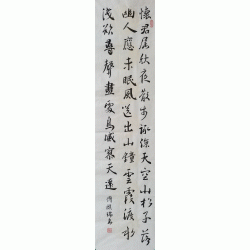 懷君屬秋夜散步詠涼天空山松子落
幽人應未眠風送出山鐘雲霞渡水
淺欲尋聲盡處鳥滅寥天遠